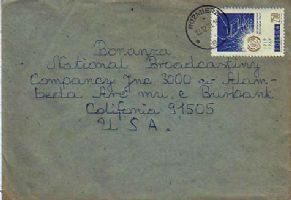 Bonanza
National Broadcasting
Company Inc 3000 w Alam-
beda Ave mu. e Burbank
Califenia 91505
U S A.